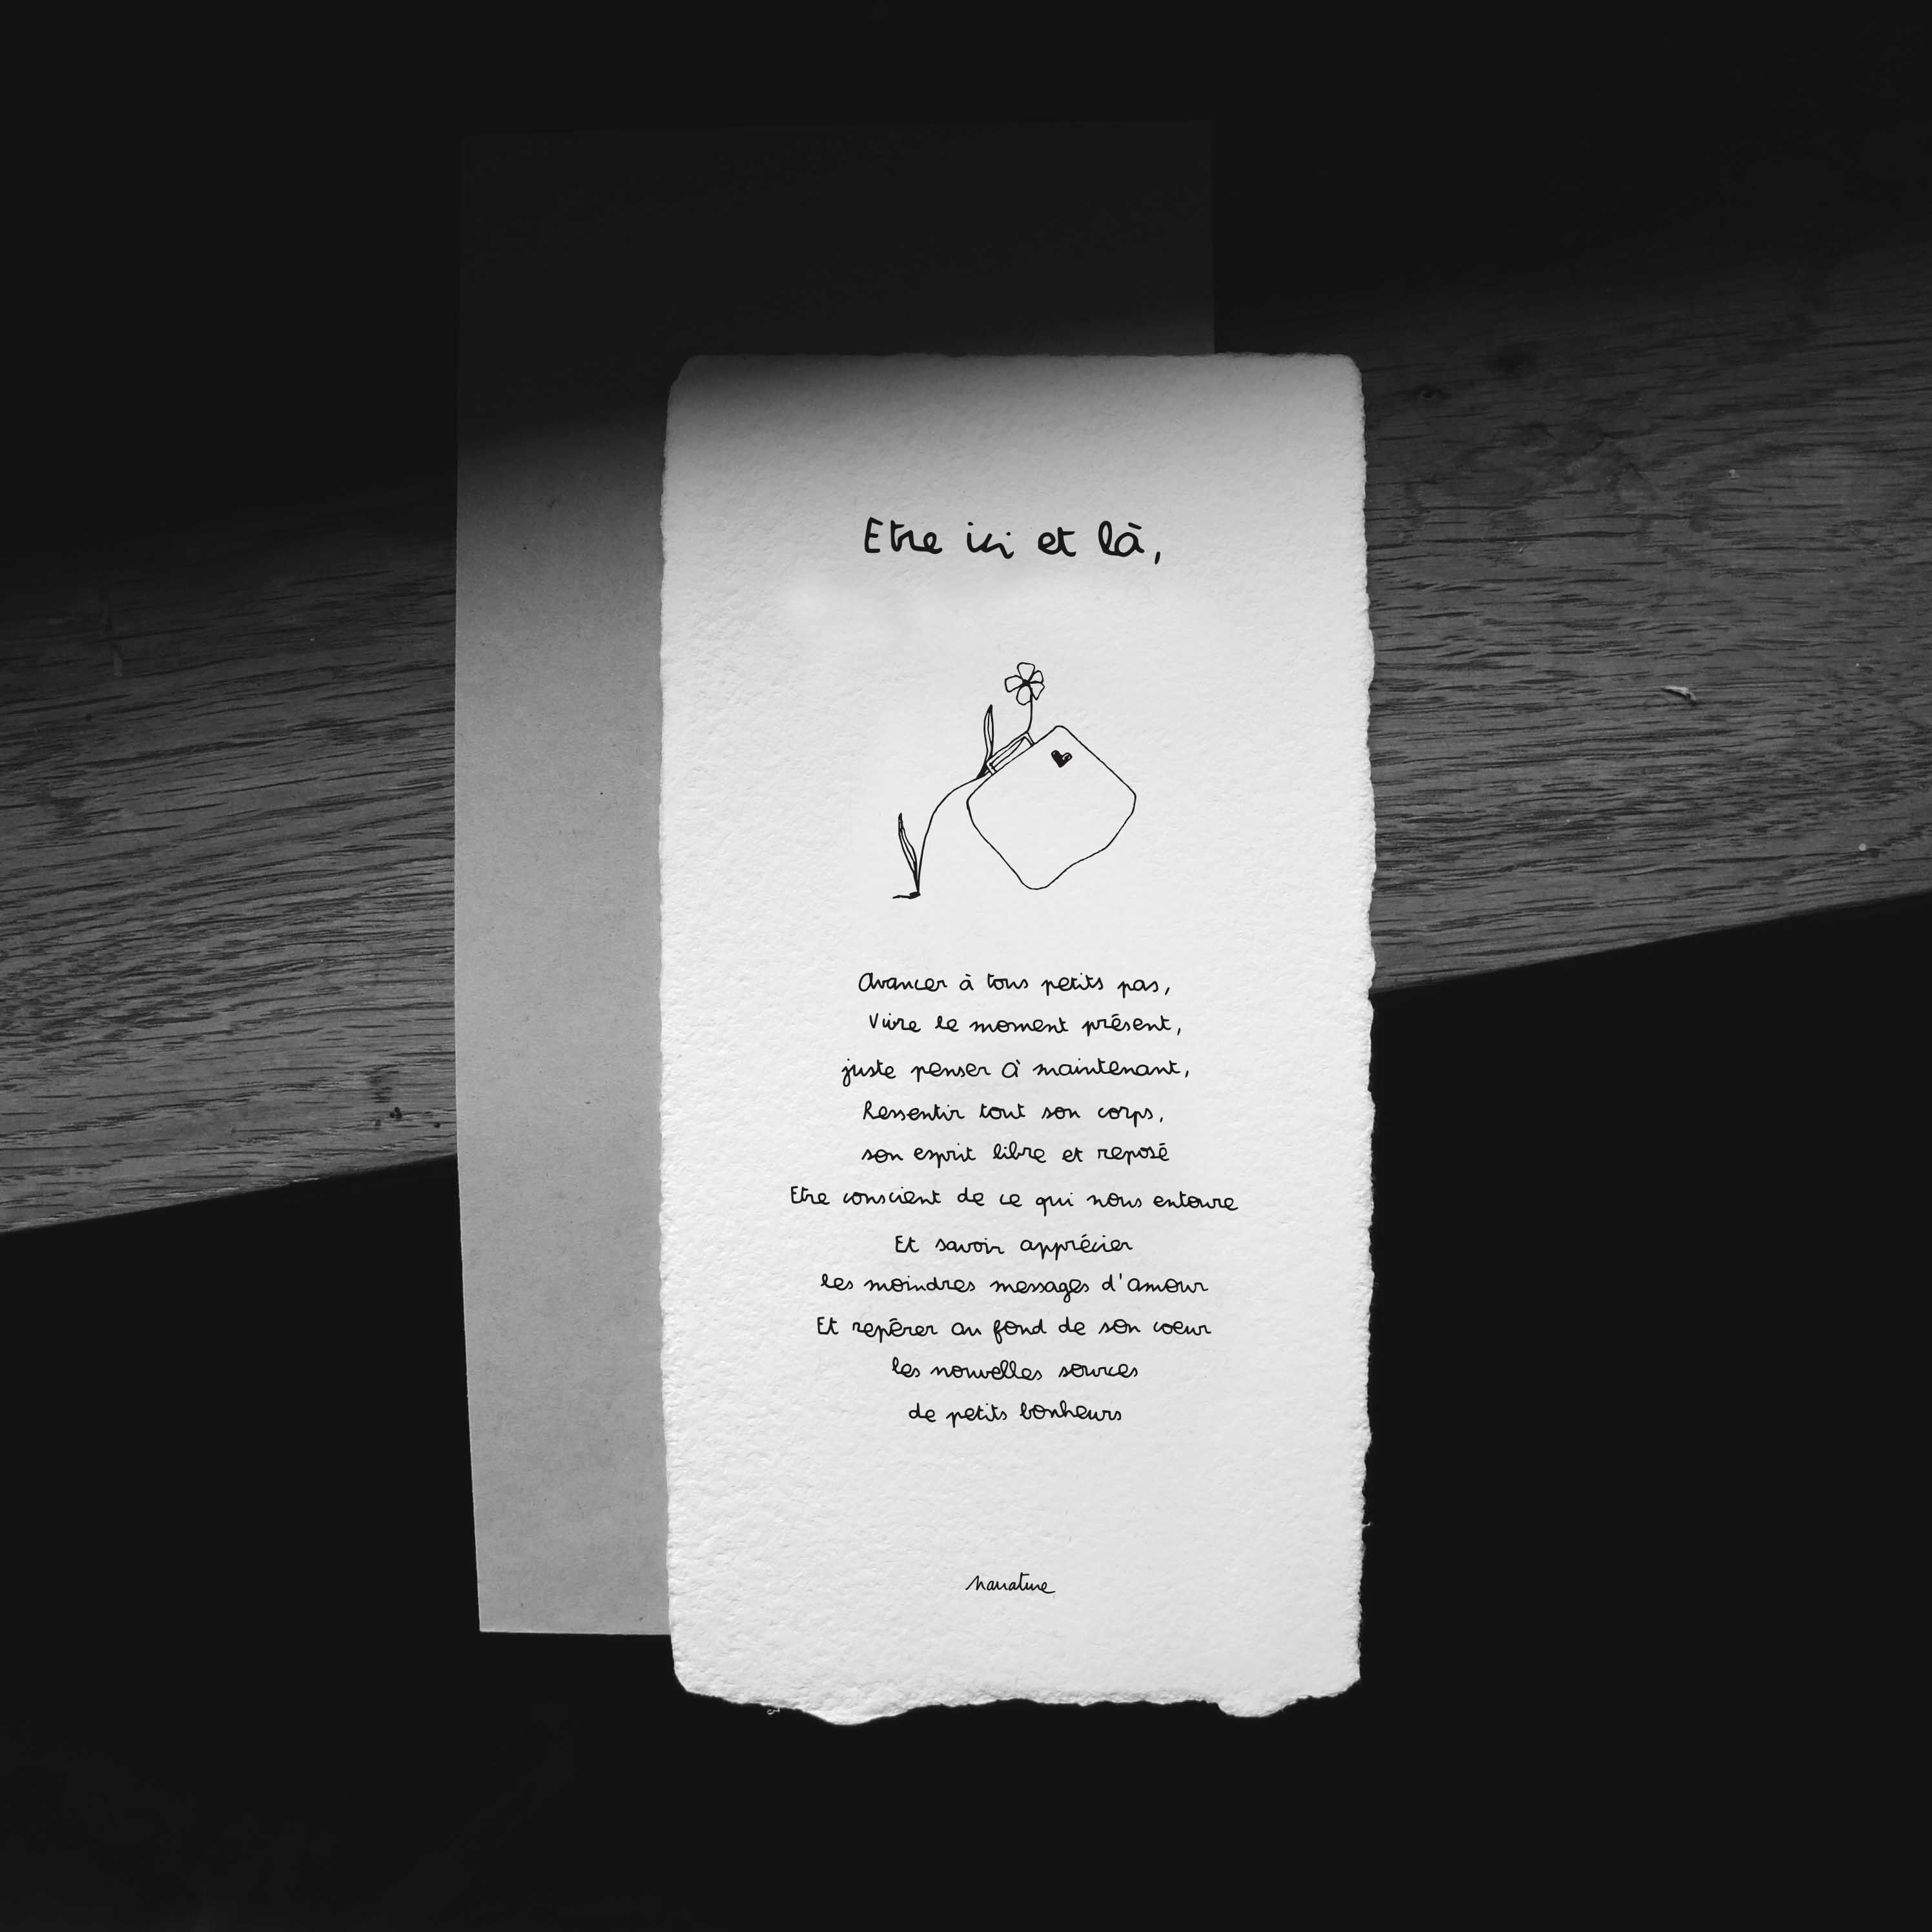 Etre ici et là,
Avancer à tous petits pas,
Vivre le moment présent,
juste penser à maintenant,
Ressentir tout son corps,
son esprit libre et reposé
Etre conscient de ce qui nous entoure
Et savoir apprécier
les moindres messages d'amour
Et repérer au fond de son coeur
les nouvelles sources
de petits bonheurs